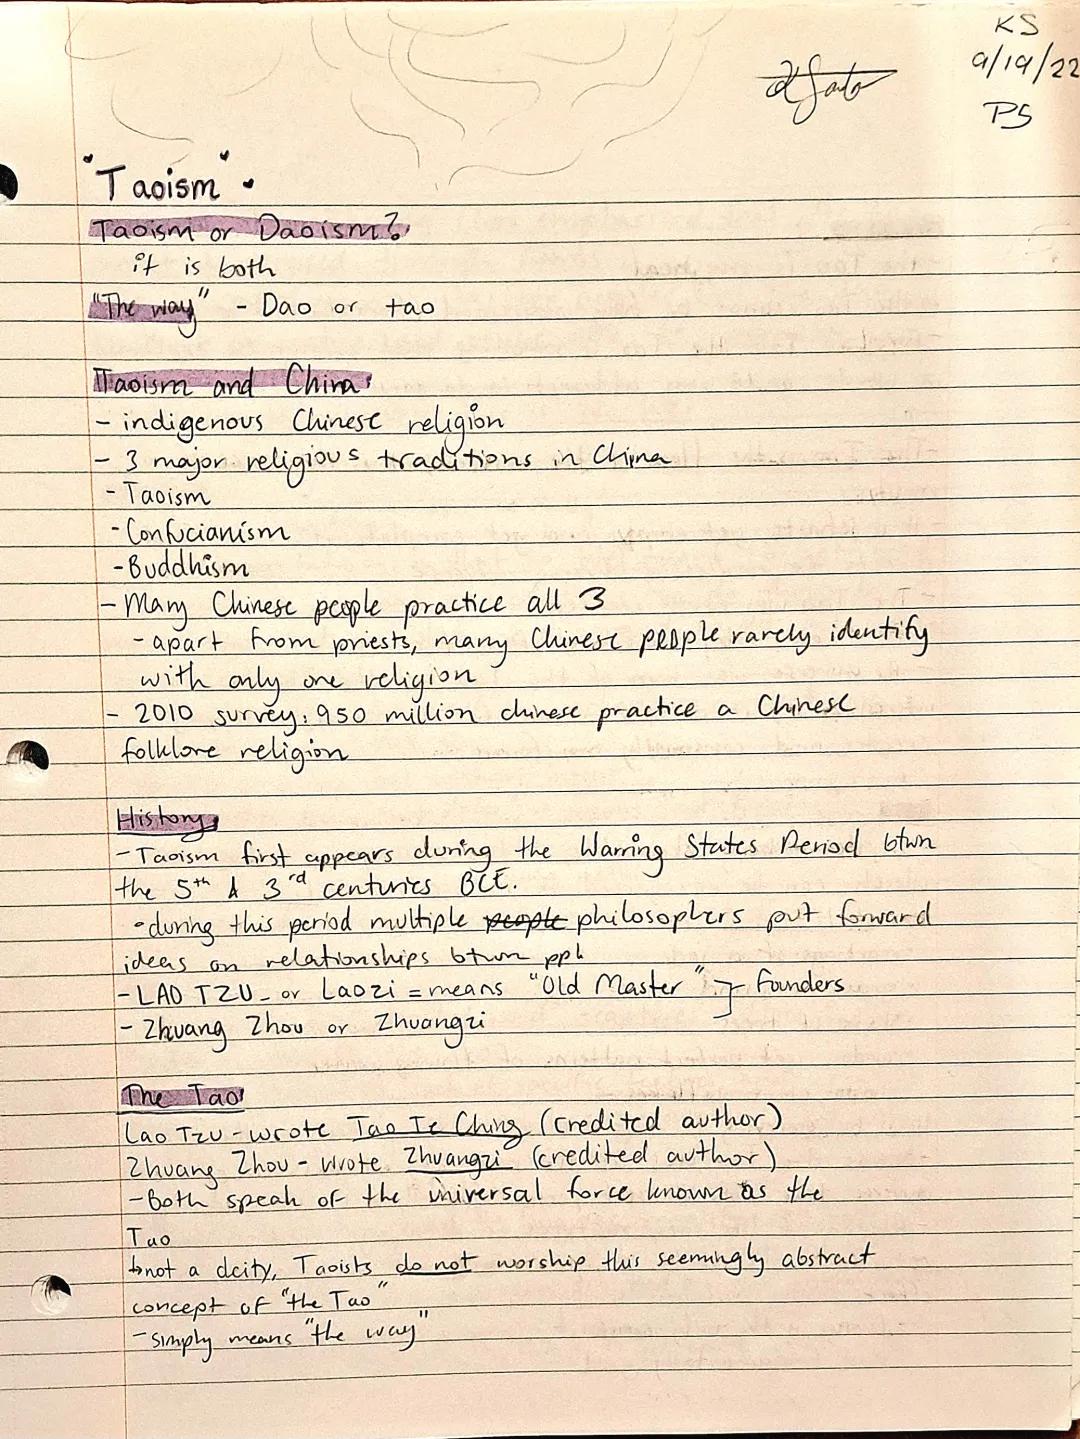 KS
9/19/22
P5
"Taoism"
Taoism or Daoism?
it is both
"The way" - Dao or tao
Taoism and China
- indigenous Chinese religion
- 3 major religious traditions in China
- Taoism
- Confucianism
- Buddhism
- Many Chinese people practice all 3
- apart from priests, many Chinese people rarely identify
with only one religion
- 2010 survey: 950 million chinese practice a Chinese
folklore religion
History
- Taoism first appears during the Warring States Period btwn
the 5th & 3rd centuries BCE.
• during this period multiple people philosophers put forward
ideas on relationships btwn ppl
- LAO TZU - or Laozi = means "Old Master" } founders
- Zhuang Zhou or Zhuangzi
The Tao
Lao Tzu - wrote Tao Te Ching (credited author)
Zhuang Zhou - wrote Zhuangzi (credited author)
- Both speak of the universal force known as the
Tao
↳ not a deity, Taoists do not worship this seemingly abstract
concept of "the Tao"
- simply means "the way"